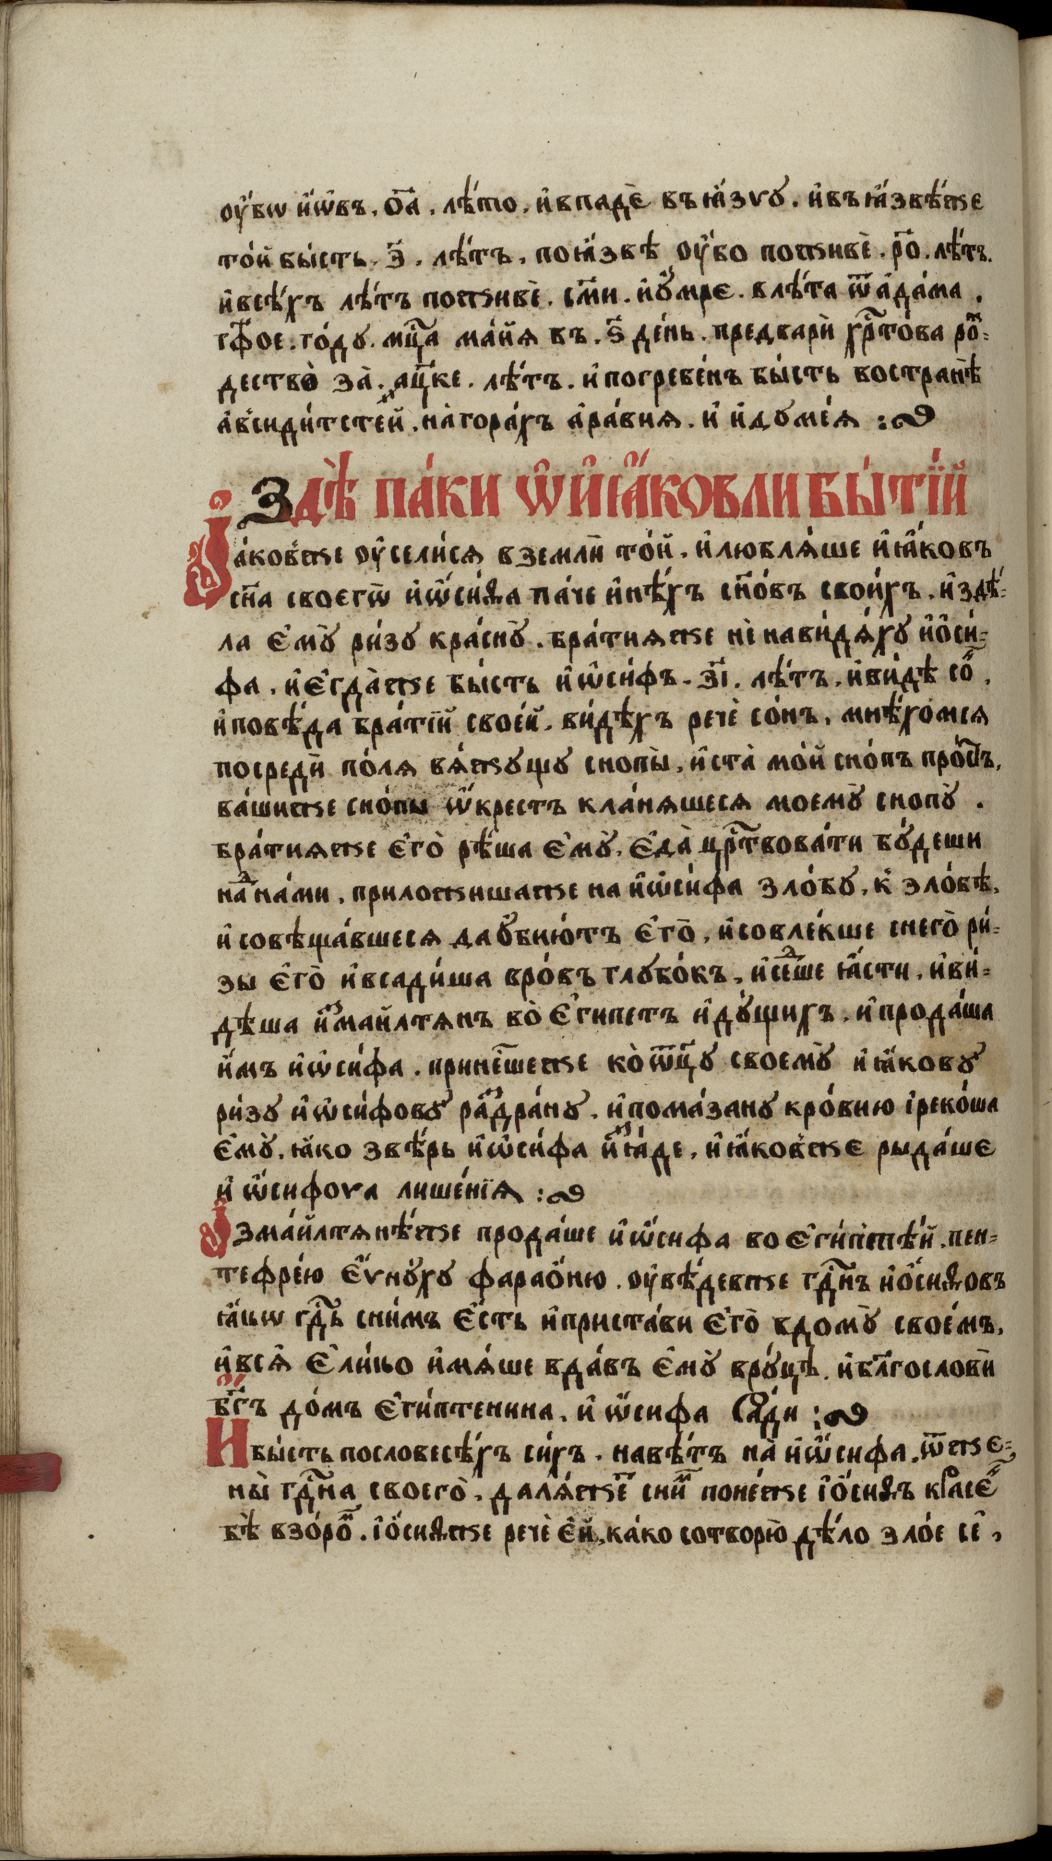 ᲂу҆́бѡ и҆́ѡвъ. о҃а. лѣ́то. и҆впадѐ въꙗ҆́зѵꙋ. и҆въꙗ҆́звѣже
то́й бы́сть. з҃. лѣ́тъ. поꙗ҆́звѣ ᲂу҆́бо поживѐ. р҃о. лѣ́тъ.
и҆всѣ́хъ лѣ́тъ поживѐ. см҃и. и҆ꙋ҆́мре. влѣ́та ѿа҆да́ма.
гф҃ое. го́дꙋ. мц҃а ма́йѧ въ. ѕ҃ де́нь. предвари̇̀ хр҃то́ва рож̾-
дество̀ за̀. ац҃ке. лѣ́тъ. и҆погребе́нъ бы́сть востранѣ̀
а҆ѵсиди́тстей. нагора́хъ а҆ра́виѧ. и҆ и҆дꙋме́ѧ :
Здѣ̀ па́ки ѡ҆и҆ꙗ҆́ковли бытїй
Іа́ковже ᲂу҆сели́сѧ вземли̇̀ то́й. и҆люблѧ́ше и҆ꙗ҆́ковъ
сн҃а своегѡ̀ и҆ѡ҆си́ѳа па́че и҆нѣ́хъ сн҃о́въ свои́хъ. и҆здѣ́-
ла є҆мꙋ̀ ри́зꙋ кра́снꙋ. бра́тиѧже не̇ нави́дѧ́хꙋ и҆о҆си́-
фа. и҆є҆гда̀же бы́сть и҆ѡ҆си́фъ. з҃і. лѣ́тъ. и҆ви́дѣ со́н.
и҆повѣ́да бра́тїй свое́й. ви́дѣхъ рече̇ со́нъ. мнѣ́хо́мсѧ
посреди̇̀ по́лѧ вѧ́жꙋщꙋ снопы̀. и҆ста̀ мо́й сно́пъ про́стъ.
ва́шиже сно́пы ѡ҆́крестъ кла́нѧшесѧ моемꙋ̀ снопꙋ̀.
бра́тиѧже є҆го̀ рѣ́ша є҆мꙋ̀. є҆да̀ цр҃твова́ти бꙋ́деши
над̾на́ми. приложишаже на и҆ѡ҆си́фа зло́бꙋ. к̾ зло́бѣ.
и҆совѣща́вшесѧ даꙋ҆бию́тъ є҆го̀. и҆совле́кше снего̀ ри́-
зы є҆го̀ и҆всади́ша вро́въ глꙋбо́къ. и҆се́дше ꙗ҆́сти. и҆ви́-
дѣша и҆змайлтѧнъ во̀ є҆гипетъ и҆дꙋ́щихъ. и҆прода́ша
и҆́мъ и҆ѡси́фа. прине́сшеже ко̀ѿц҃ꙋ своемꙋ̀ и҆ꙗ҆́ковꙋ
ри́зꙋ и҆ѡ҆си́фовꙋ раз̾дра́нꙋ. и҆пома́занꙋ кро́вию і҆реко́ша
є҆мꙋ̀. ꙗ҆́ко звѣ́рь и҆ѡ҆си́фа и҆з̾ꙗ҆́де. и҆ꙗ҆́ковже рыда́ше
и҆ ѡ҆́сифоѵа лише́нїѧ :
Ізма́йлтѧнѣ́же прода́ше и҆ѡ҆́сифа во є҆ги́петѣ́й. пен-
тефре́ю є҆́ѵнꙋхꙋ фарао́ню. ᲂу҆вѣ́девже гд҃и́нъ и҆о҆́сиѳовъ
ꙗ҆́цѡ гд҃ь сни́мъ є҆́сть и҆приста́ви є҆го̀ вдомꙋ̀ свое́мъ.
и҆всѧ̑ є҆ли́цо и҆мѧ́ше вда́въ є҆мꙋ̀ врꙋ́цѣ. и҆бл҃гослови̇̀
бг҃ъ до́мъ є҆ги́птенина. и҆ ѡ҆́сифа ра́ди :
И бы́сть пословесѣ́хъ си́хъ. навѣ́тъ на̀ и҆ѡ҆́сифа. ѿже-
ны̀ гд҃и́на своего̀. далѧ́жет сни́м поне́же і҆о҆́сиѳъ красе́н
бѣ̀ взо́ром. і҆о҆́сиѳже рече̇ є҆́й, ка́ко сотворю̀ дѣ́ло зло́е се̇,